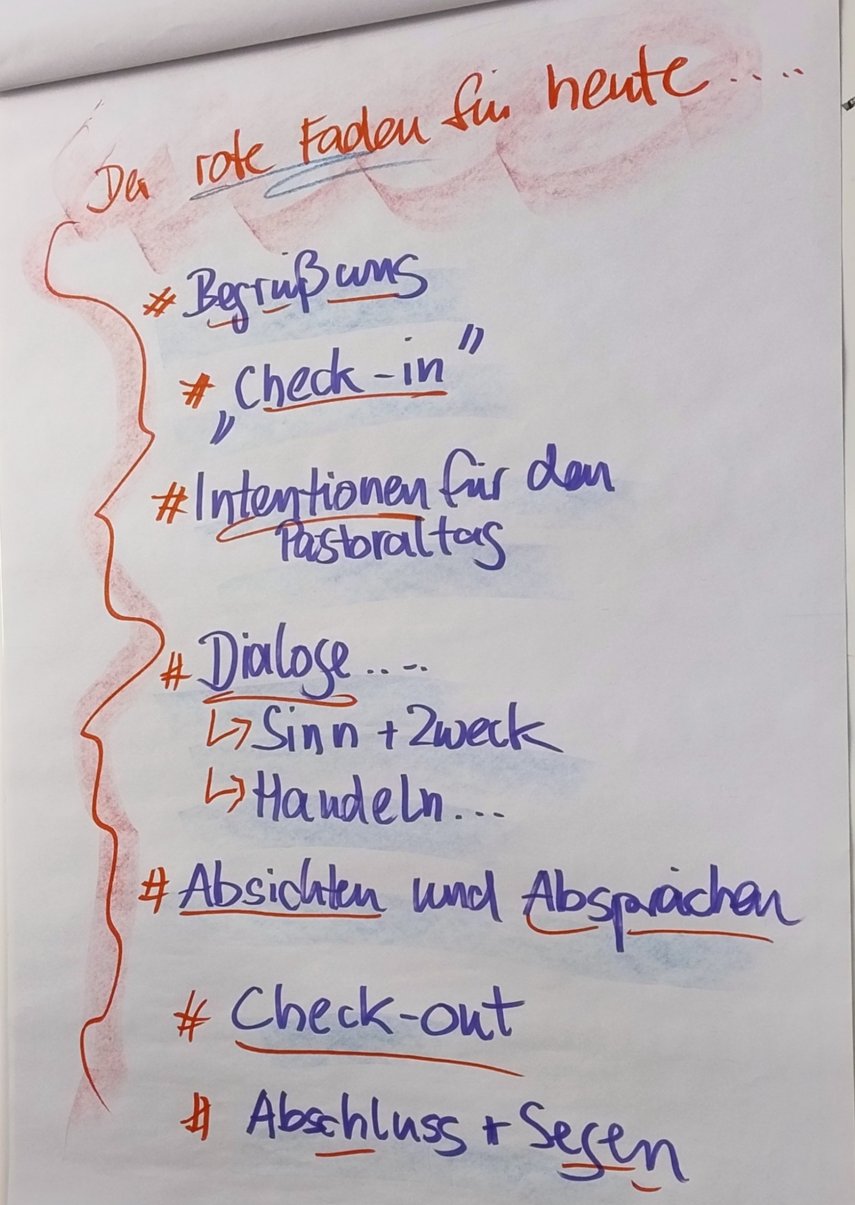 Der rote Faden für heute....
# Begrüßung
# „Check-in"
# Intentionen für den
Pastoraltag
# Dialoge.....
↳ Sinn + Zweck
↳ Handeln...
# Absichten und Absprachen
# Check-out
# Abschluss + Segen